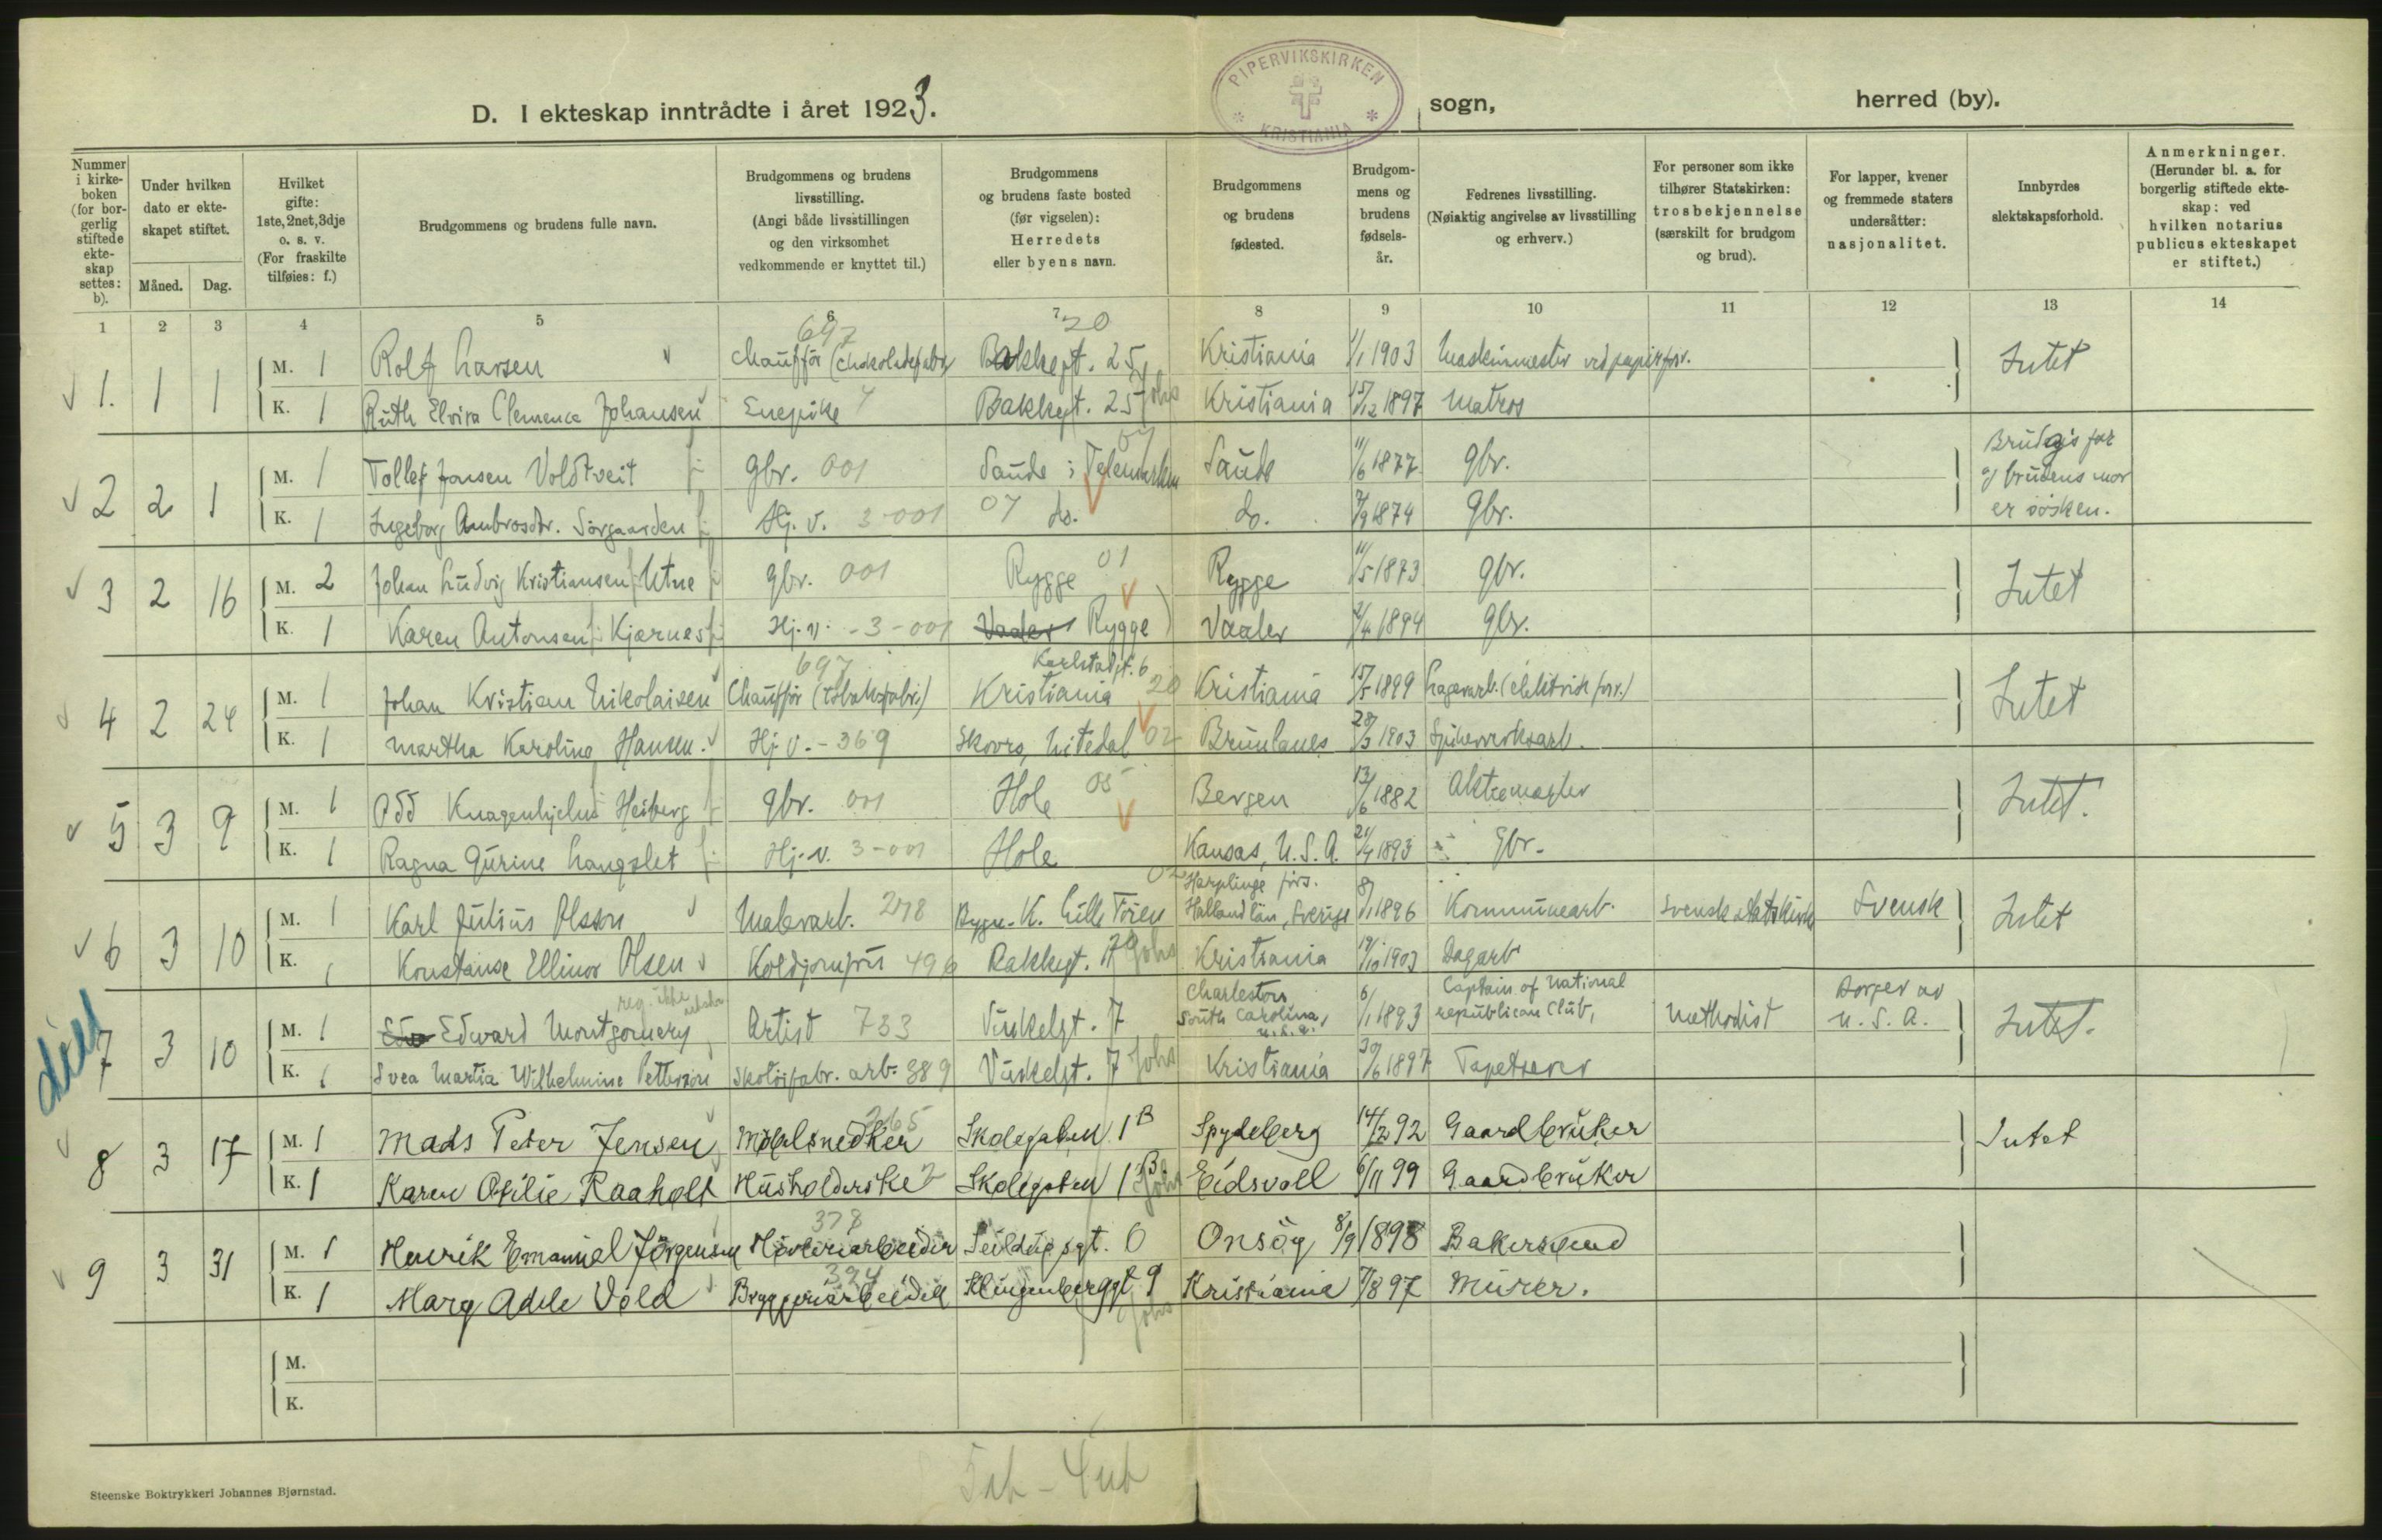 PIPERVIKSKIRKEN
KRISTIANIA
D. I ekteskap inntrådte i året 1923.
sogn,
herred (by).
Nummer i kirke-boken (for bor-gerlig stiftede ekte-skap settes: b).
Under hvilken dato er ekte-skapet stiftet.
Måned.
Dag.
Hvilket gifte: 1ste, 2net, 3dje o. s. v. (For fraskilte tilføies: f.)
Brudgommens og brudens fulle navn.
Brudgommens og brudens livsstilling. (Angi både livsstillingen og den virksomhet vedkommende er knyttet til.)
Brudgommens og brudens faste bosted (før vigselen): Herredets eller byens navn.
Brudgommens og brudens fødested.
Brudgom-mens og brudens fødsels-år.
Fedrenes livsstilling. (Nøiaktig angivelse av livsstilling og erhverv.)
For personer som ikke tilhører Statskirken: trosbekjennelse (særskilt for brudgom og brud).
For lapper, kvener og fremmede staters undersåtter: nasjonalitet.
Innbyrdes slektskapsforhold.
Anmerkninger. (Herunder bl. a. for borgerlig stiftede ekte-skap: ved hvilken notarius publicus ekteskapet er stiftet.)
1 2 3 4 5 6 7 8 9 10 11 12 13 14
697 20
1. 1 1 M. 1 Rolf Larsen Chauffør (Chokoladefabr. Bakkegt. 25 Kristiania 1/1 1903 Maskinmester ved papirfor. Intet
K. 1 Ruth Elvira Clemence Johansen Enepike Bakkegt. 25 Johs Kristiania 15/12 1897 Matros
2 2 1 M. 1 Tollef Jonsen Voldtveit gbr. 001 Saude i Telemarken 07 Saude 11/6 1877 gbr. Brudgs far
og brudens mor
er søsken.
K. 1 Ingeborg Ambrosdtr. Sørgaarden Hj. v. 3-001 07 do. do. 7/9 1874 gbr.
3 2 16 M. 2 Johan Ludvig Kristiansen Utne gbr. 001 Rygge 01 Rygge 11/5 1873 gbr. Intet
K. 1 Karen Antonsen Kjærnes Hj. v. - 3-001 Vaaler Rygge Vaaler 2/4 1894 gbr.
697 Karlstadgt. 6
4 2 24 M. 1 Johan Kristian Nikolaisen Chauffør (tobaksfabr.) Kristiania 20 Kristiania 15/5 1899 Lagerarb. (elektrisk forr.) Intet
K. 1 Martha Karoline Hansen Hj. v. - 369 Skovrs, Nitedal 02 Brunlanes 28/3 1903 Spikerverksarb.
5 3 9 M. 1 Odd Knagenhjelm Heiberg gbr. 001 Hole 05 Bergen 13/6 1882 Aktiemægler Intet.
K. 1 Ragna Gurine Langslet Hj. v. 3-001 Hole Kansas, U.S.A. 21/4 1893 Gbr.
Harplinge förs.
6 3 10 M. 1 Karl Julius Olsson Malerarb. 278 Bygn. K. Lille Frøen 02 Halland län, Sverige 8/1 1896 Kommunearb. Svensk statskirke Svensk Intet
K. 1 Konstanse Ellinor Olsen Koldjomfru 496 Bakkegt. 17 Johs Kristiania 19/10 1903 Dagarb.
reg. ikke
Charleston Captain of National Borger av
7 3 10 M. 1 Edward Montgomery Artist 733 Vinkelgt. 7 South Carolina, U.S.A. 6/1 1893 republican Club, Methodist U. S. A. Intet.
K. 1 Svea Martia Wilhelmine Petterson Skotøifabr. arb. 389 Vinkelgt. 7 Johs Kristiania 30/6 1897 Tapetserer
8 3 17 M. 1 Mads Peter Jensen Møbelsnedker 265 Skolegaten 1 B Spydeberg 14/2 92 Gaardbruker Intet
K. 1 Karen Otilie Raaholt Husholderske Skolegaten 1 B Johs Eidsvoll 6/11 99 Gaardbruker
9 3 31 M. 1 Henrik Emanuel Jørgensen Høvleriarbeider 378 Seildugsgt. 6 Onsøy 8/9 1898 Bakersvend
K. 1 Marg Adele Vold Bryggeriarbeider 324 Klingenberggt. 9 Johs Kristiania 7/8 97 Murer.
M.
K.
Steenske Boktrykkeri Johannes Bjørnstad.